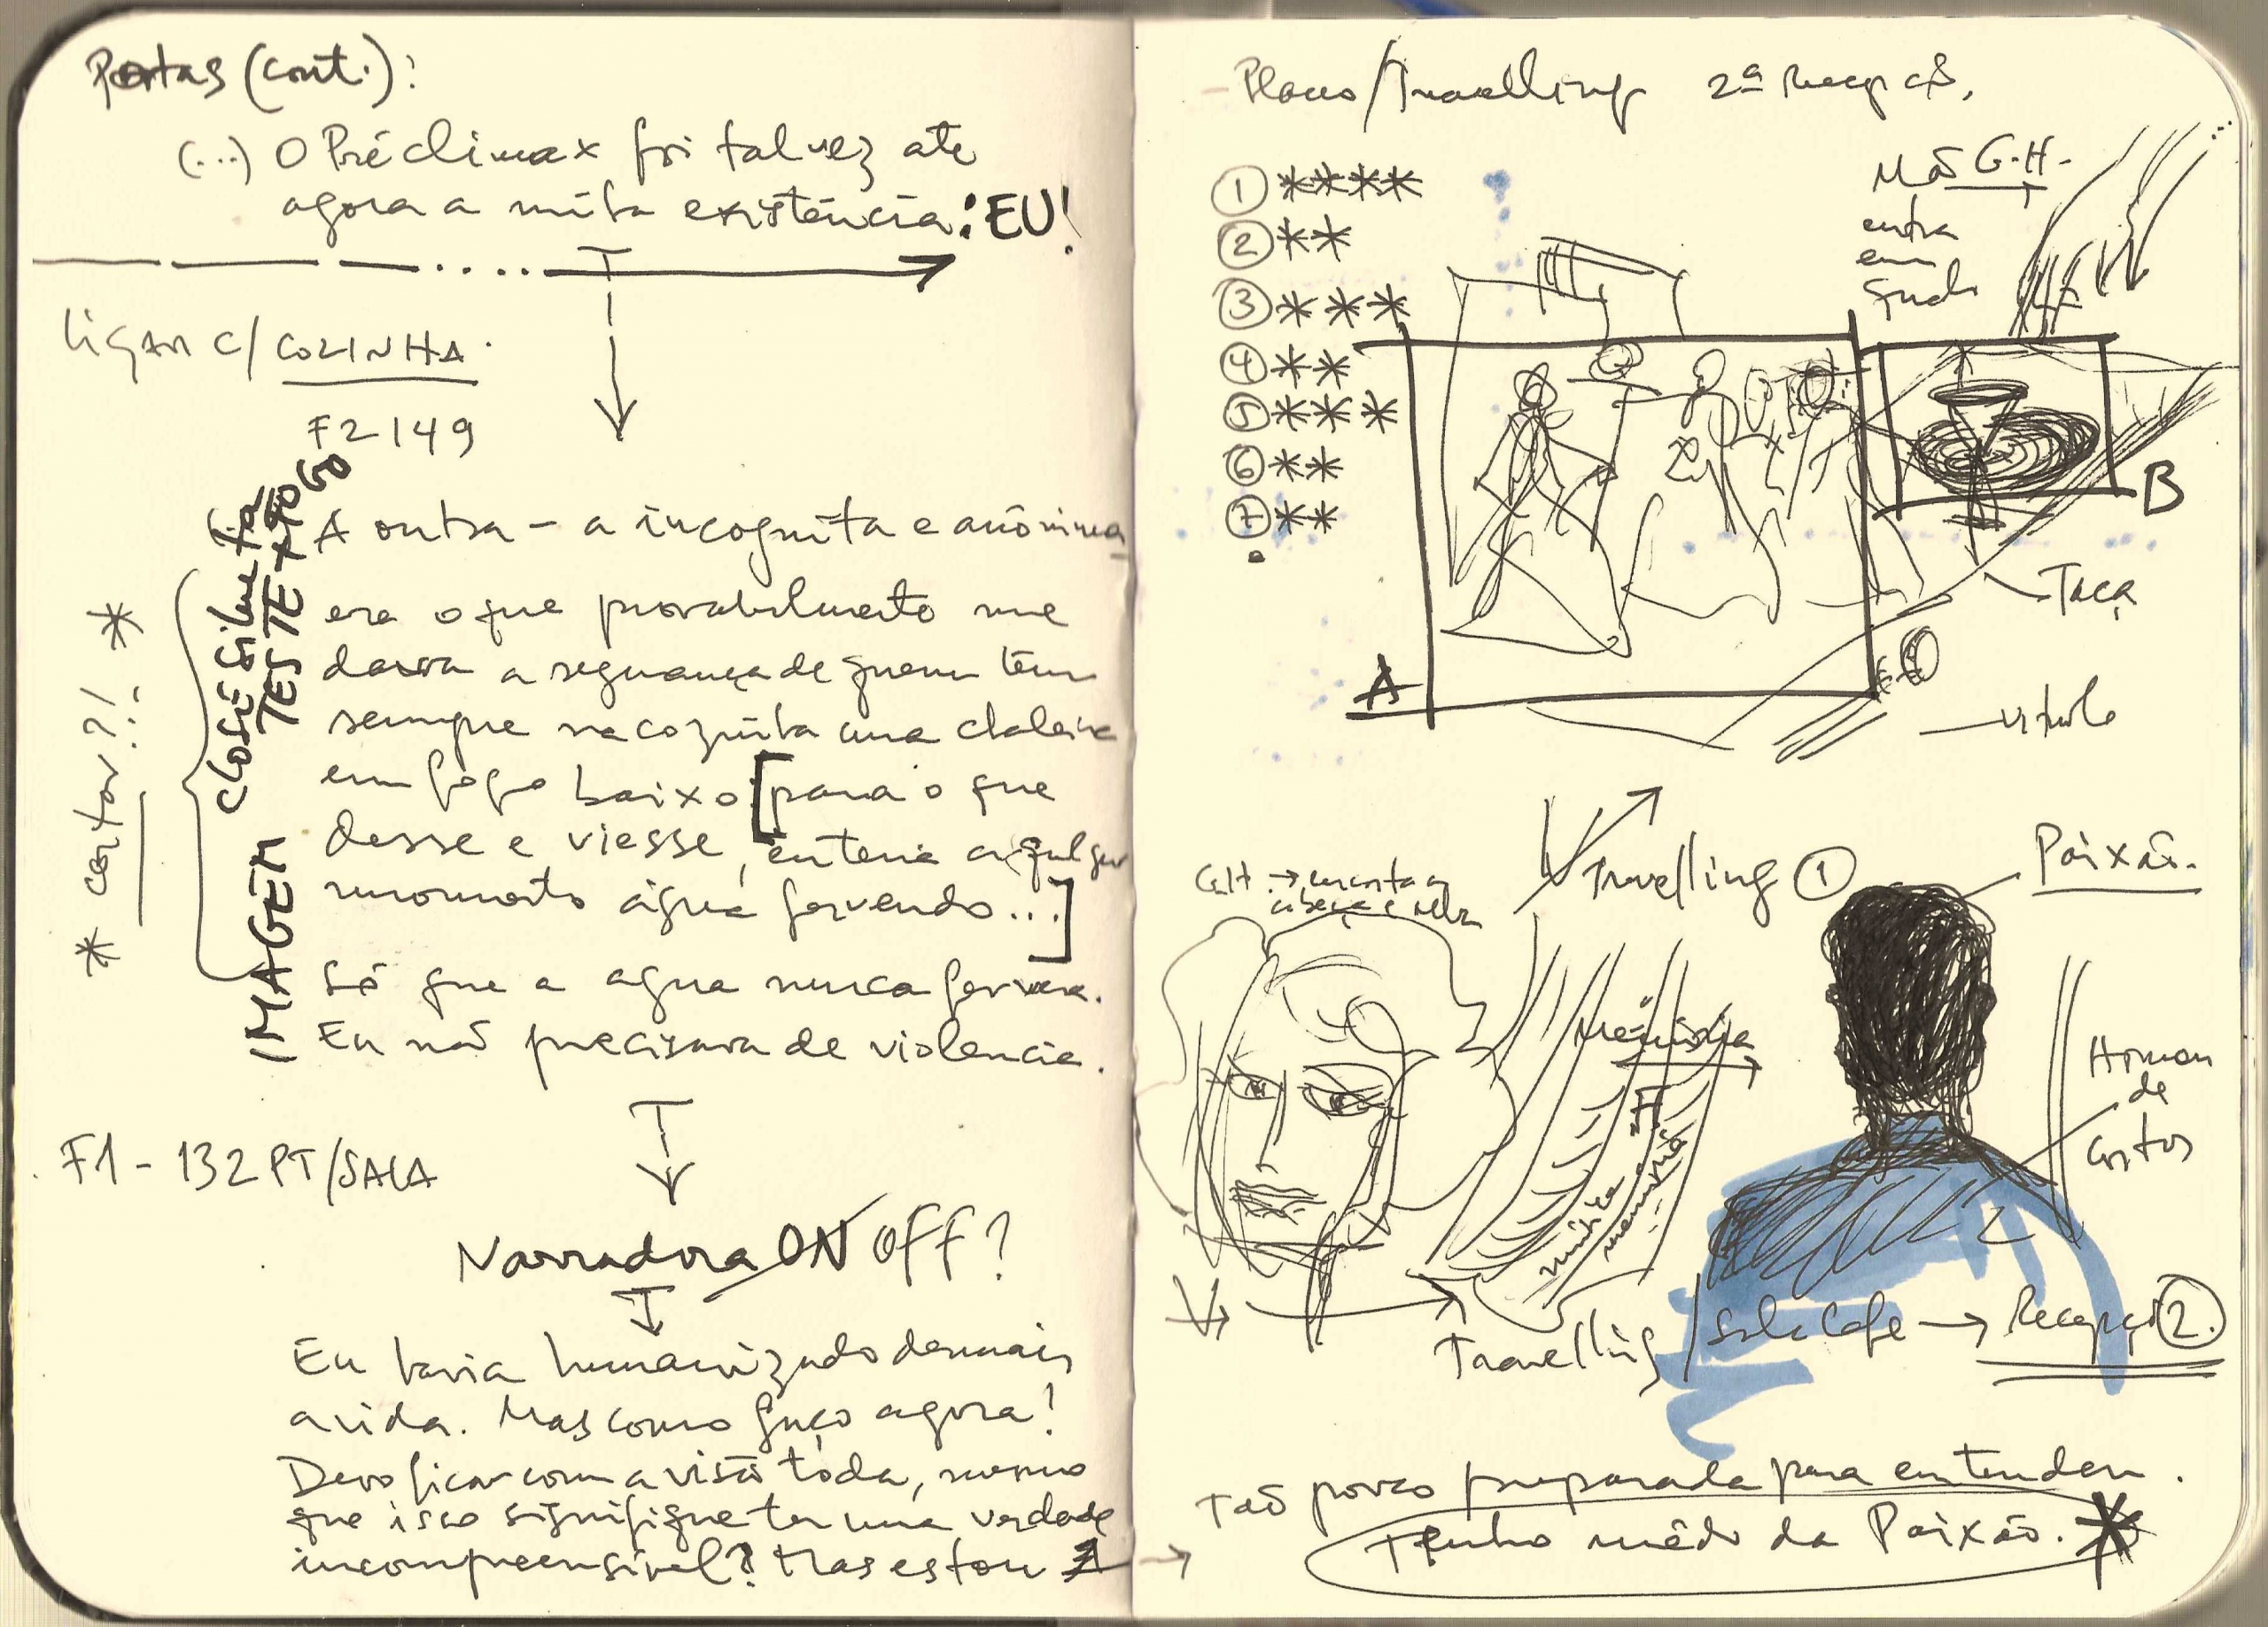 Portas (cont.):
(...) O Préclimax foi talvez até
agora a minha existência: EU!
Ligar c/ COZINHA.
F2 149
CLOSE SILHUETA
TESTE +90
60
IMAGEM
* cortar?! *
A outra – a incognita e anônima
era o que provavelmente me
dava a segurança de quem tem
sempre na cozinha uma chaleira
em fogo baixo [para o que
desse e viesse, eu teria a qualquer
momento água fervendo...]
Só que a agua nunca fervera.
Eu não precisava de violencia.
F1 - 132 PT/SALA
Narradora ON OFF?
Eu havia humanizado demais
a vida. Mas como faço agora!
Devo ficar com a visão toda, mesmo
que isso signifique ter uma verdade
incompreensível? Mas estou
- Planos/Travelling 2ª Recepção.
① ****
② **
③ ***
④ **
⑤ ***
⑥ **
⑦ **
Mão G.H.
entra
em
A
B
Taça
Travelling ①
Paixão.
Memória
Homem
de
Costas
Travelling / Sala Café → Recepção ②.
Tão pouco preparada para entender.
Tenho mêdo da Paixão. *